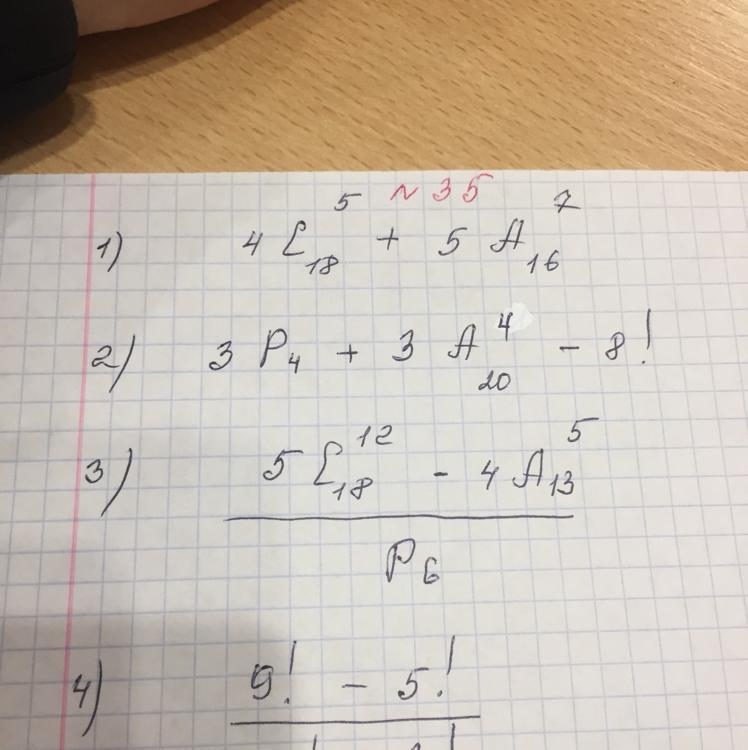 № 35
1) 4 C₁₈⁵ + 5 A₁₆⁷
2) 3 P₄ + 3 A₂₀⁴ - 8!
3) (5 C₁₈¹² - 4 A₁₃⁵) / P₆
4) 9! - 5!